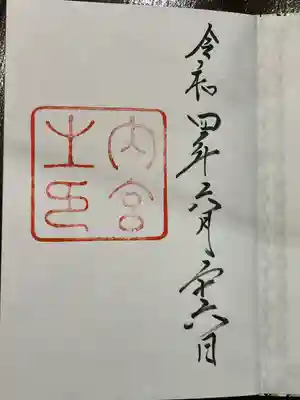 令和四年六月二十六日
内宮
之印